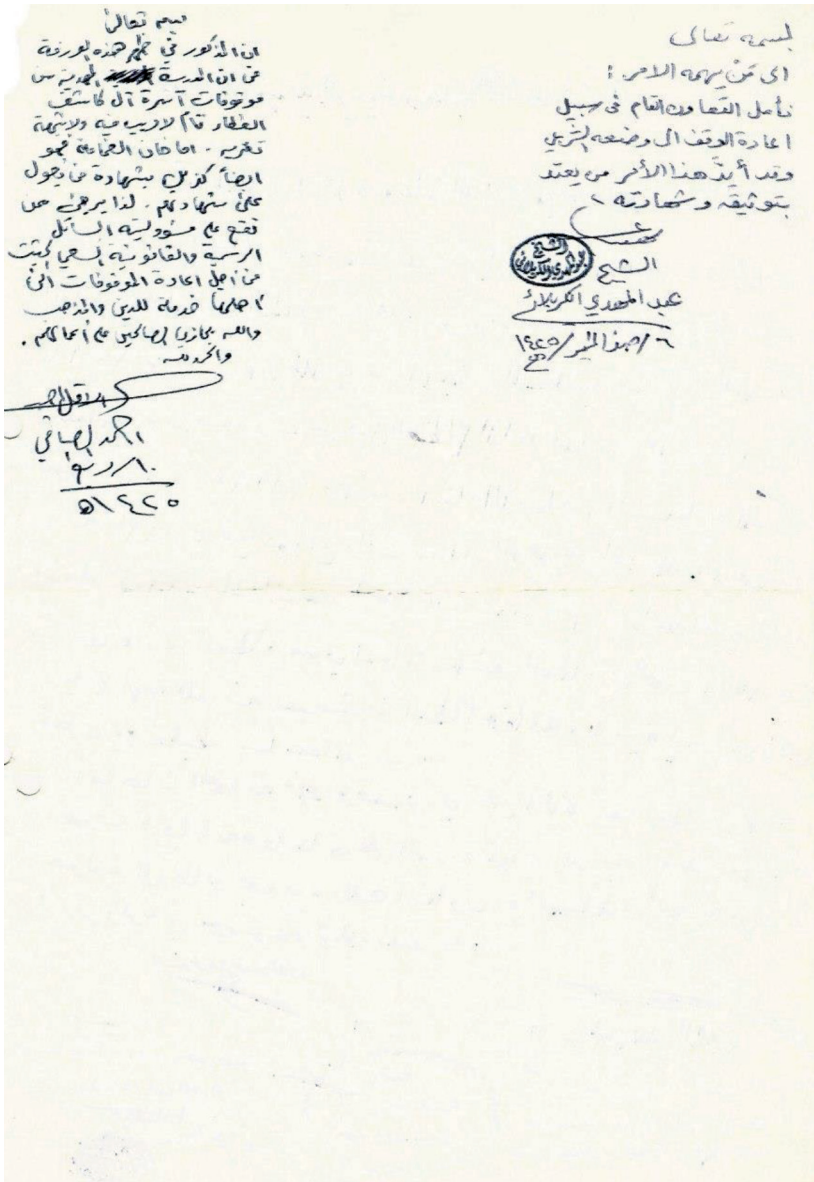 بسمه تعالى
الى مَنْ يهمه الامر :
نأمل التعاون التام في سبيل
اعادة الوقف الى وضعه الشرعي
وقد أيدّ هذا الأمر من يعتد
بتوثيقه وشهادته
الشيخ
عبد المهدي الكربلائي
الشيخ
عبد المهدي الكربلائي
٦/صفر الخير/١٤٢٥
بسمه تعالى
ان المذكور في ظهر هذه الورقة
من ان المدرسة المهدية من
موقوفات آسرة آل كاشف
الغطاء تام لا ريب فيه ولا شبهة
تعتريه . اما خان فهو
ايضاً كذلك بشهادة من
على شهاداتهم . لذا يرجى من
تقع عليه مسؤولية المسائل
الرسمية والقانونية السعي الحثيث
من اجل اعادة الموقوفات الى
اهلها خدمة للدين والمذهب
والله يجازي الصالحين على أعمالهم .
والحمد لله
احمد الصافي
١٠/
١٤٢٥ه